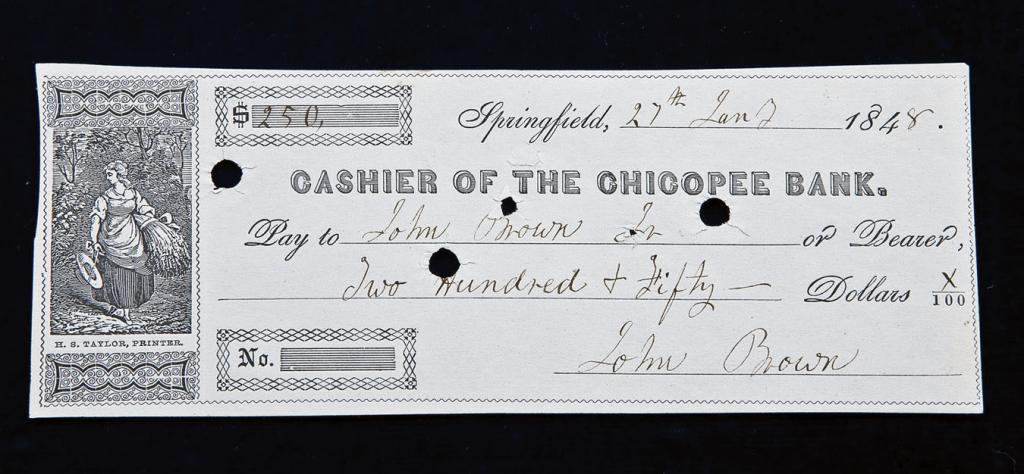 $ 250, Springfield, 27th Jany 1848.
CASHIER OF THE CHICOPEE BANK.
Pay to John Brown Jr or Bearer,
Two Hundred & Fifty — Dollars X/100
H. S. TAYLOR, PRINTER.
No.
John Brown